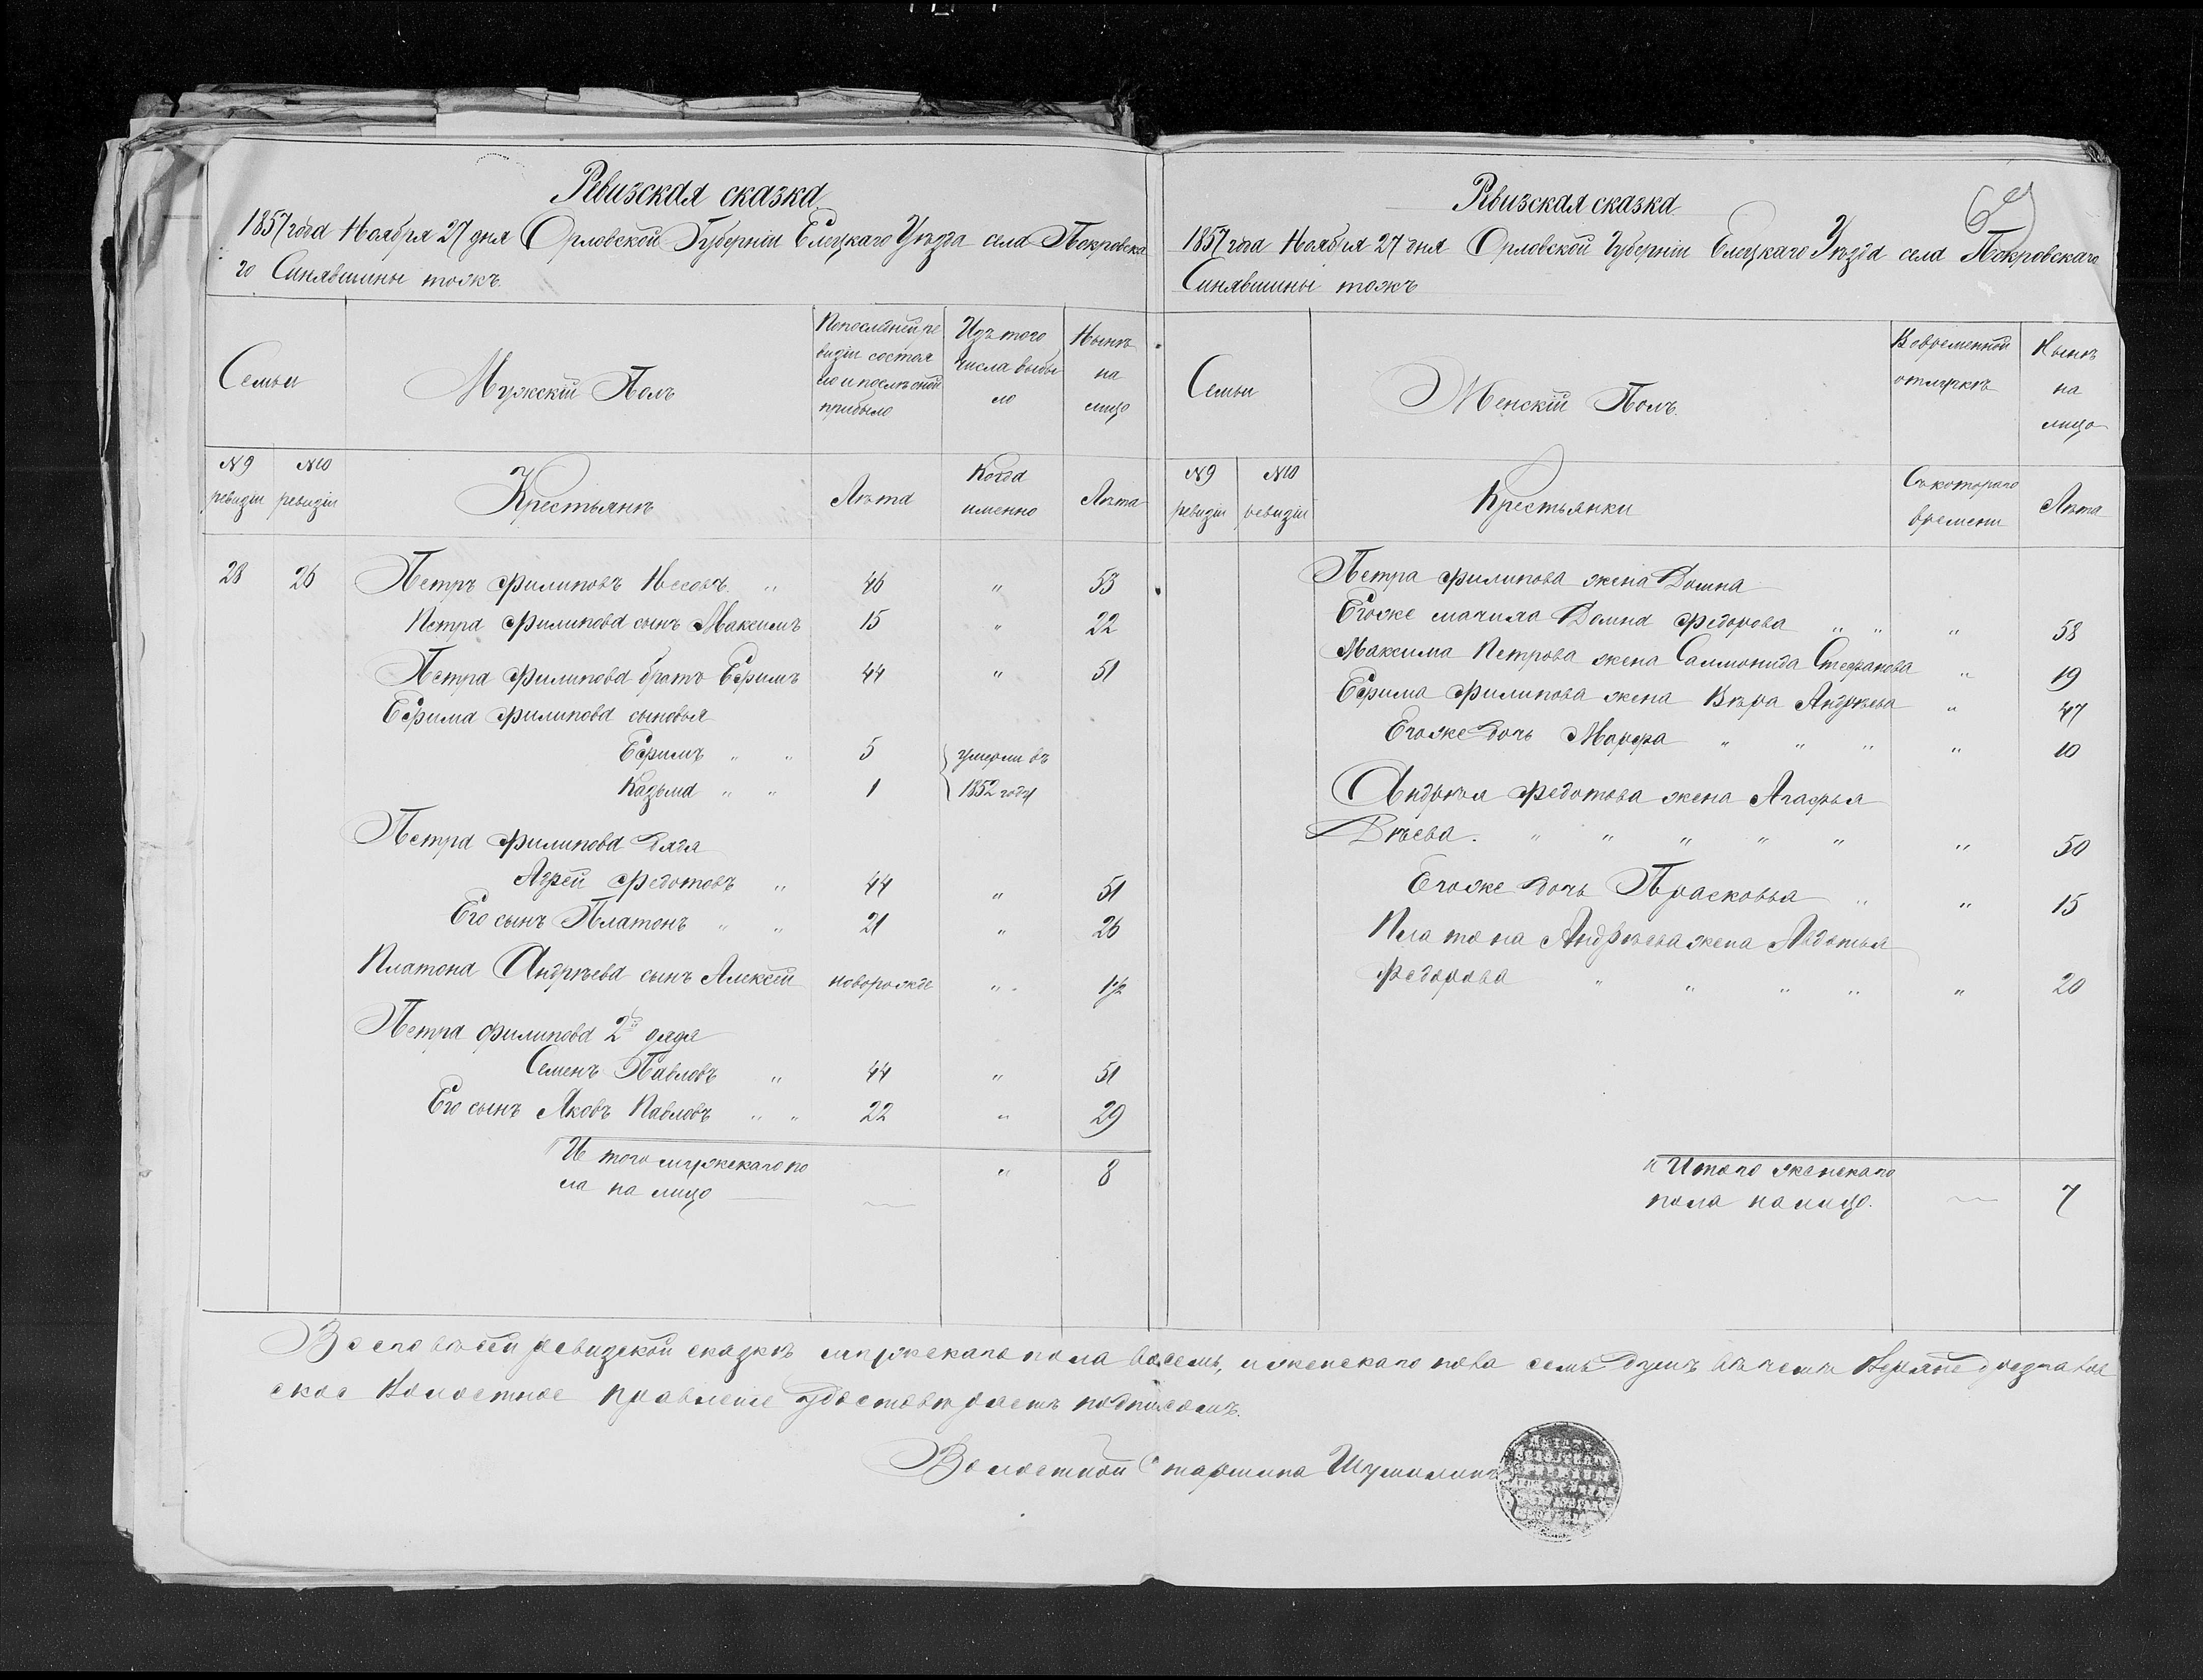 Ревизская сказка
1857 года Ноября 27 дня Орловской Губерніи Елецкаго Уѣзда села Покровска
го Синявшины тожъ.
Семьи
Мужскій Полъ
По последней ре
визіи состоя
ло и послѣ оной
прибыло
Изъ того
числа выбы
ло
Нынѣ
на
лицо
№ 9
ревизіи
№ 10
ревизіи
Крестьянѣ
Лѣта
Когда
именно
Лѣта
28 26 Петръ Филиповъ " 46 " 53
Петра Филипова сынъ Максимъ 15 " 22
Петра Филипова братъ Ефимъ 44 " 51
Ефима Филипова сыновья
Ефимъ " " 5 умерли въ
Казьма " " 1 1852 году
Петра Филипова дядя
Адрей Федотовъ " 44 " 51
Его сынъ Платонъ " " 21 " 26
Платона Андреева сынъ Алексей новорожде " 1½
Петра Филипова 2й дядя
Семенъ Павловъ " 44 " 51
Его сынъ Яковъ Павловъ " " 22 " 29
И того мужскаго по " 8
ла на лицо
Ревизская сказка
69
1857 года Ноября 27 дня Орловской Губерніи Елецкаго Уѣзда села Покровскаго
Синявшины тожъ
Семьи
Женскій Полъ.
Во временной
отлучкѣ
Нынѣ
на
лицо
№ 9
ревизіи
№ 10
ревизіи
Крестьянки
Съ котораго
времени
Лѣта
Петра Филипова жена Домна
Егоже мачиха Домна Федорова " " " 58
Максима Петрова жена Саломонида Стефанова " 19
Ефима Филипова жена Вѣра Андрѣева " 47
Егоже дочь Марфа " " " " 10
Андрѣя Федотова жена Агафья
" " " " " " 50
Егоже дочь Прасковья " " 15
Платона Андрѣева жена Авдотья
Федорова " " " " " 20
Итого женскаго
пола налицо. 7
ревизской сказкѣ мужскаго пола восемь, и женскаго пола семь душъ въ чемъ
ское Волостное Правление удостовѣряетъ подписомъ.
Волостной Старшина Шумилинъ